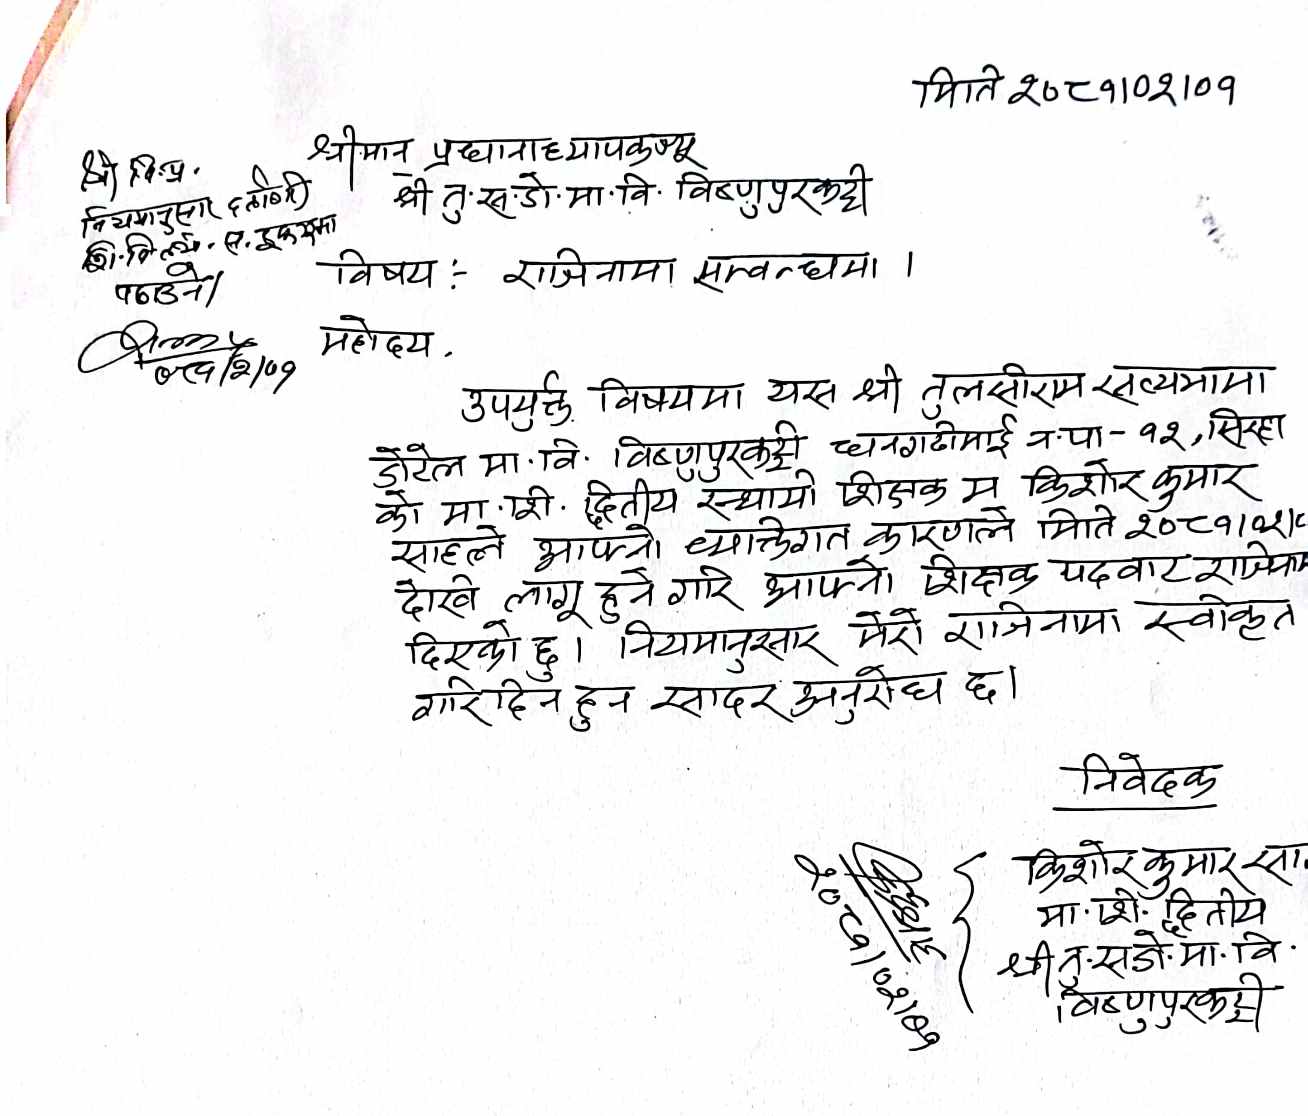 मिति २०८१।०२।०१
श्रीमान् प्रधानाध्यापकज्यू
श्री तु.स.डो.मा.वि. विष्णुपुरकट्टी
श्री वि.प्र.
नियमानुसार दर्ता गरी
पठाउने।
विषय :- राजिनामा सम्वन्धमा ।
महोदय,
उपर्युक्त विषयमा यस श्री तुलसीराम सत्यभामा
डोटेल मा.वि. विष्णुपुरकट्टी धनगढीमाई न.पा-१२, सिरहा
को मा.शि. द्वितीय स्थायी शिक्षक म किशोर कुमार
साहले आफ्नो व्यक्तिगत कारणले मिति २०८१।०२।
देखि लागू हुने गरि आफ्नो शिक्षक पदवाट
दिएको छु। नियमानुसार मेरो राजिनामा स्वीकृत
गरिदिन हुन सादर अनुरोध छ।
निवेदक
किशोर कुमार सा
मा.शि. द्वितीय
श्री तु.स.डो.मा.वि.
विष्णुपुरकट्टी
२०८१।०२।०१